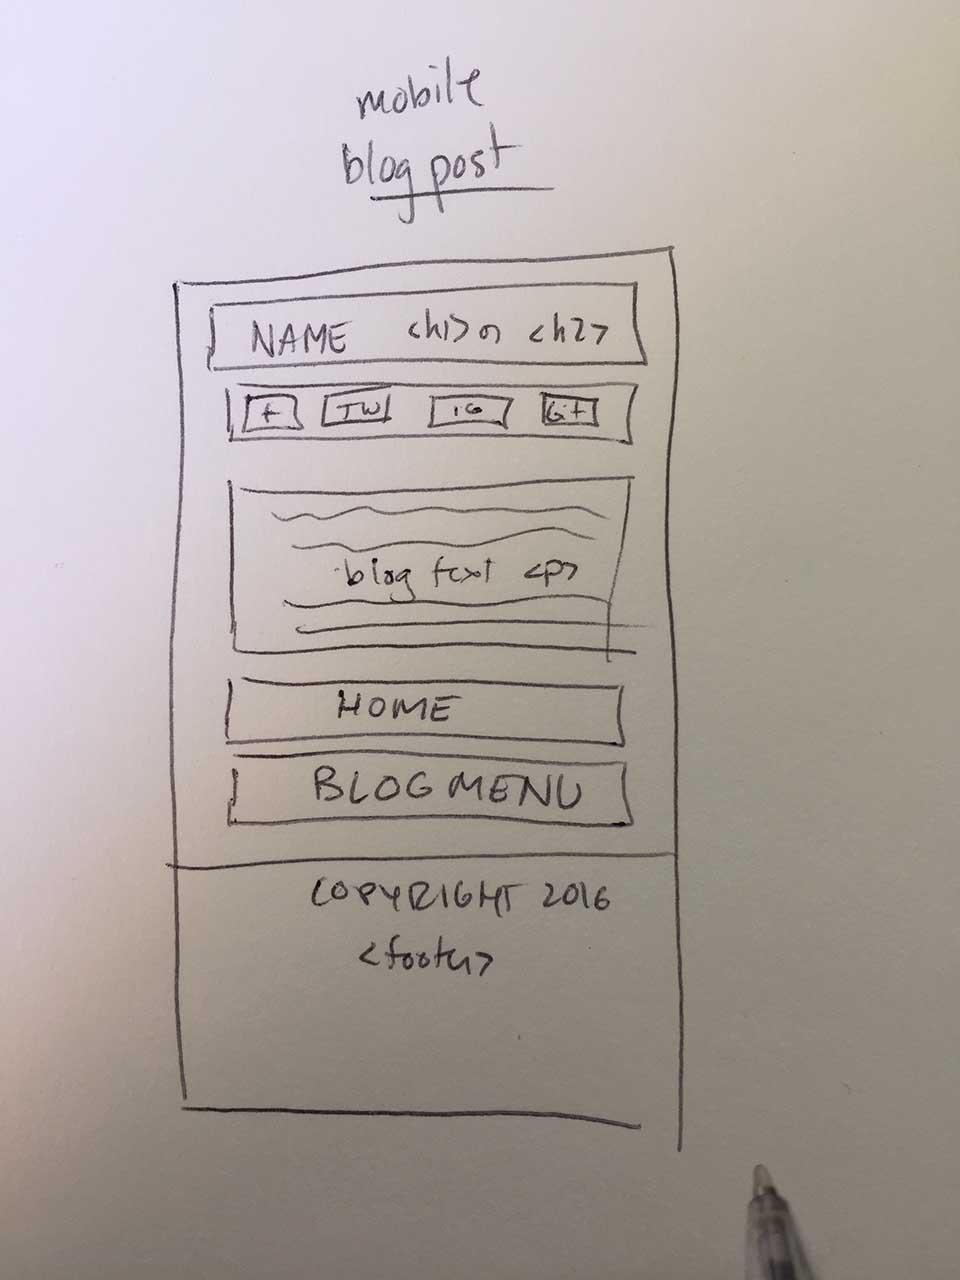 mobile
blog post
NAME <h1> or <h2>
f TW IG Git
blog text <p>
HOME
BLOG MENU
COPYRIGHT 2016
<footer>